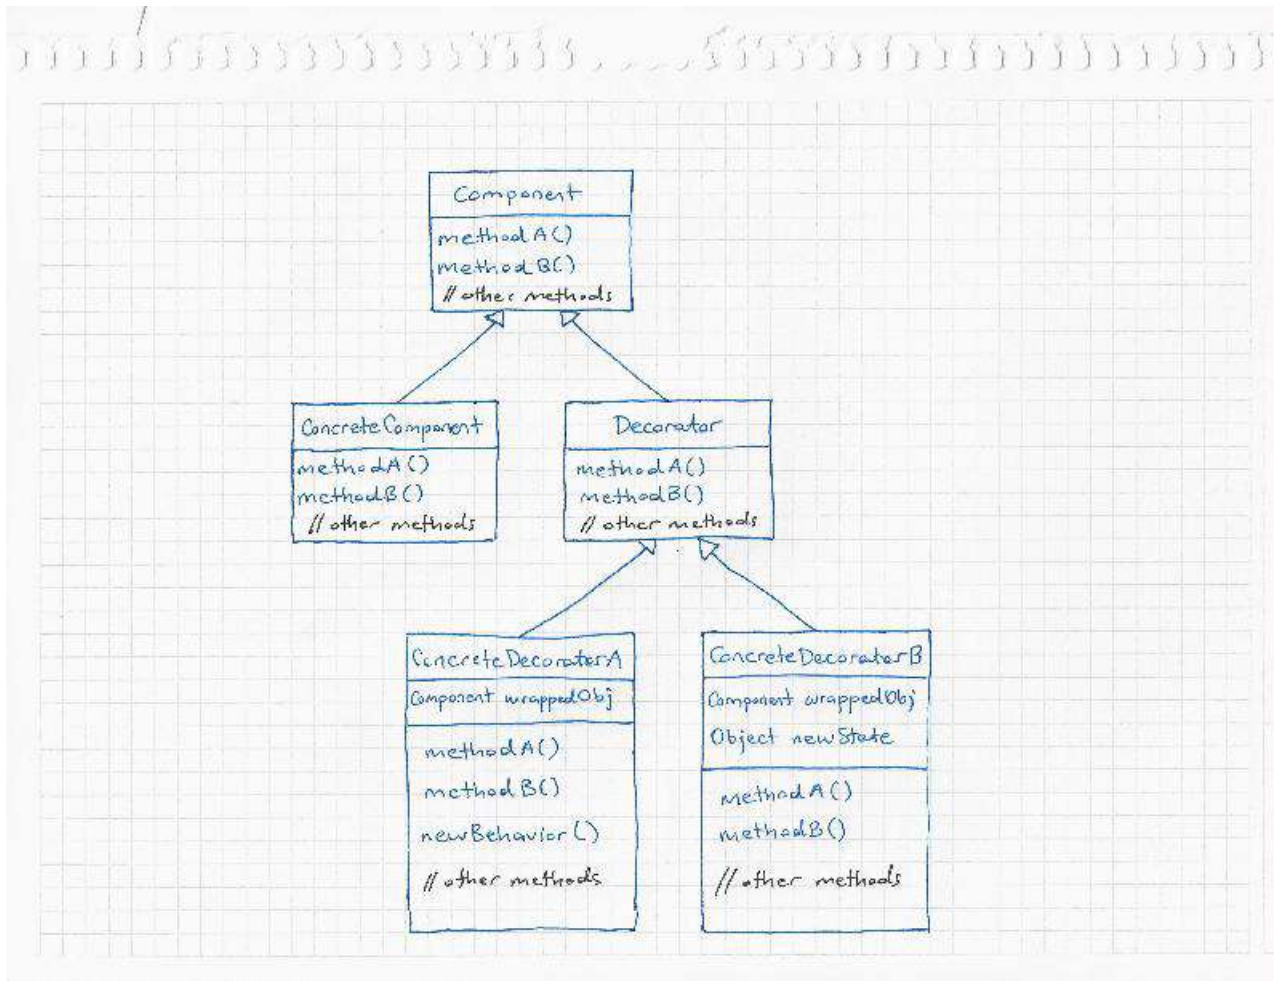 Component
methodA()
methodB()
// other methods
ConcreteComponent
methodA()
methodB()
// other methods
Decorator
methodA()
methodB()
// other methods
ConcreteDecoratorA
Component wrappedObj
methodA()
methodB()
newBehavior()
// other methods
ConcreteDecoratorB
Component wrappedObj
Object newState
methodA()
methodB()
// other methods